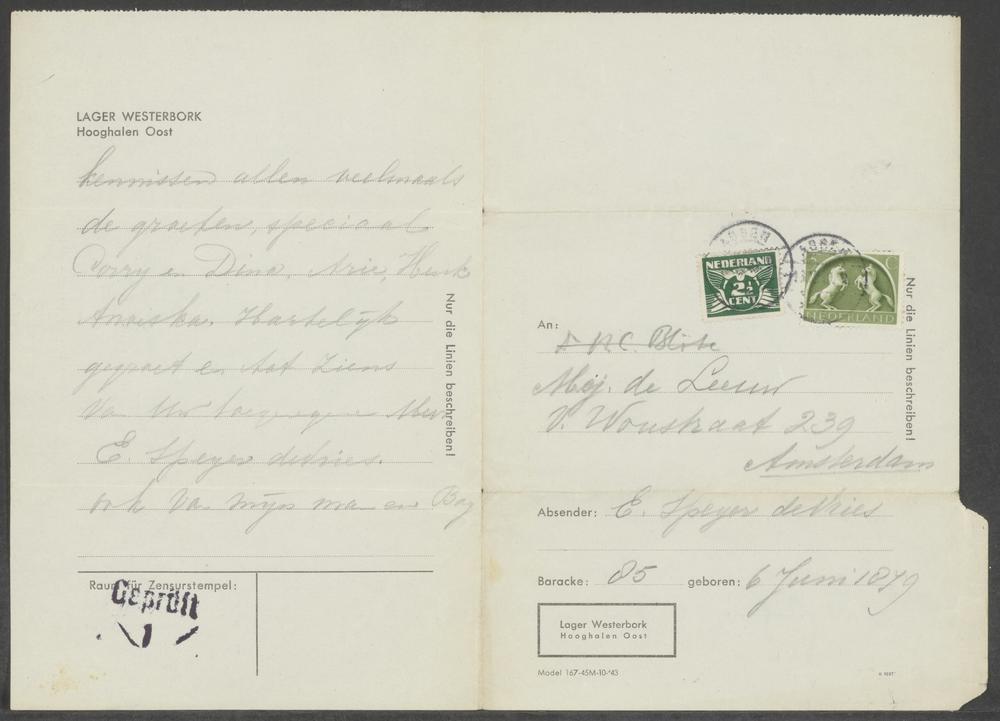 LAGER WESTERBORK
Hooghalen Oost
kennissen allen veelmaals
de groeten, speciaal
Corry en Dina, Arie, Henk
Hartelijk
gegroet en tot Ziens
Van Uw toegenegen Mevr
E. Speyer deVries.
ook Van mijn man en
Nur die Linien beschreiben!
Raum für Zensurstempel:
Geprüft
1
ASSEN
ASSEN
NEDERLAND
2½
CENT
5 C
NEDERLAND
Nur die Linien beschreiben!
An:
Mej. de Leeuw
V. Woustraat 239
Amsterdam
Absender: E. Speyer deVries
Baracke: 85 geboren: 6 Juni 1879
Lager Westerbork
Hooghalen Oost
Model 167-45M-10-'43